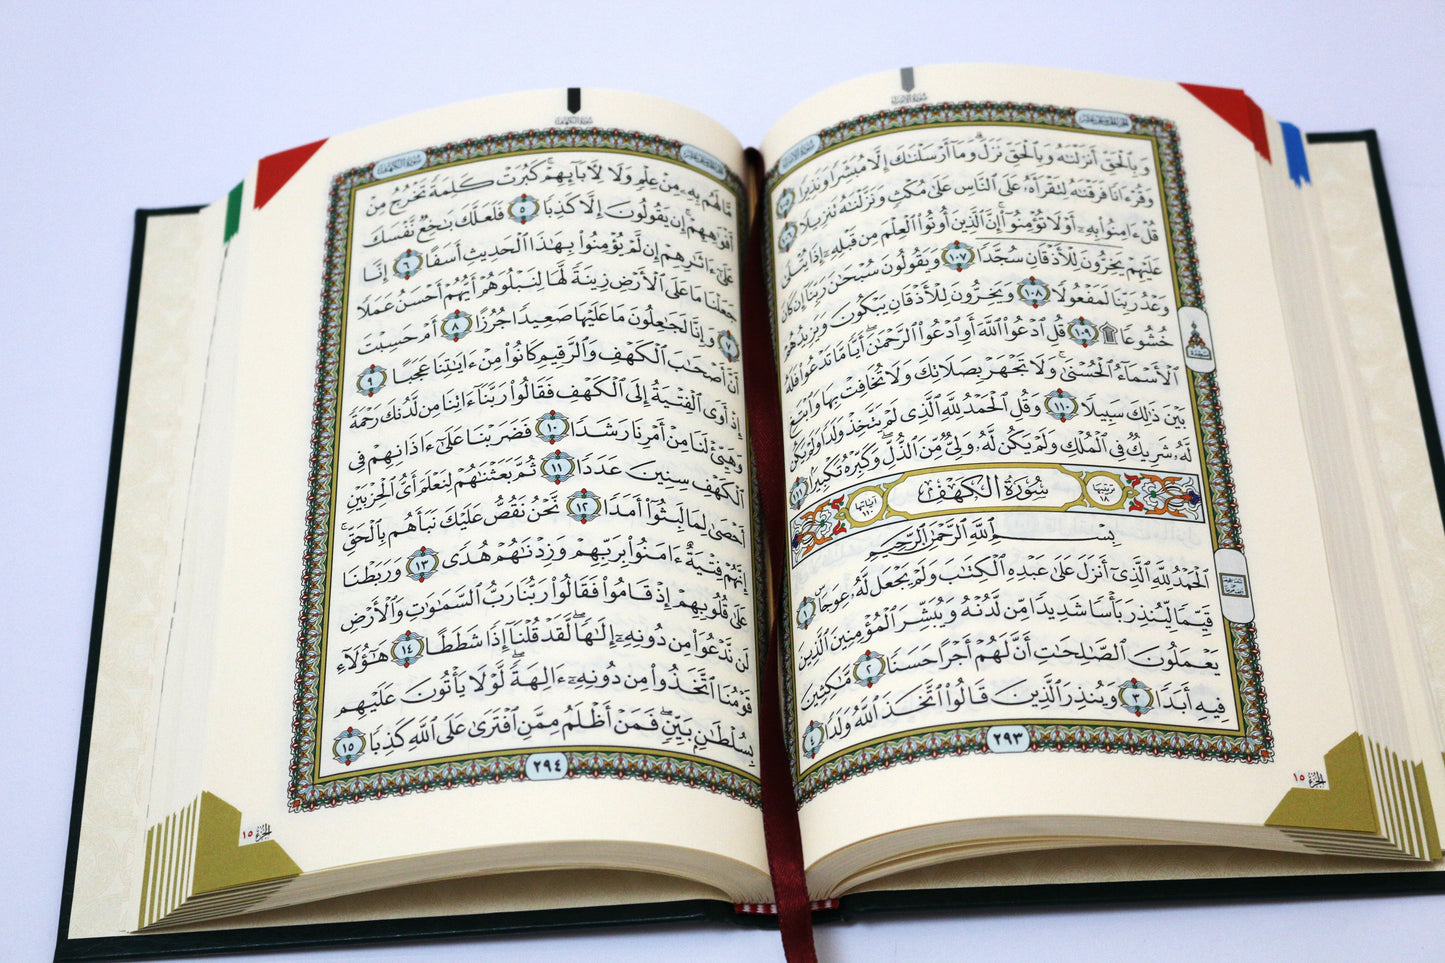 سُورَةُ الإِسْرَاءِ
الجزء الخامس عشر
سُورَةُ الإِسْرَاءِ
وَبِٱلْحَقِّ أَنزَلْنَٰهُ وَبِٱلْحَقِّ نَزَلَ ۗ وَمَآ أَرْسَلْنَٰكَ إِلَّا مُبَشِّرًا وَنَذِيرًا ١٠٥
وَقُرْءَانًا فَرَقْنَٰهُ لِتَقْرَأَهُۥ عَلَى ٱلنَّاسِ عَلَىٰ مُكْثٍ وَنَزَّلْنَٰهُ تَنزِيلًا ١٠٦
قُلْ ءَامِنُوا۟ بِهِۦٓ أَوْ لَا تُؤْمِنُوٓا۟ ۚ إِنَّ ٱلَّذِينَ أُوتُوا۟ ٱلْعِلْمَ مِن قَبْلِهِۦٓ إِذَا يُتْلَىٰ
عَلَيْهِمْ يَخِرُّونَ لِلْأَذْقَانِ سُجَّدًا ١٠٧ وَيَقُولُونَ سُبْحَٰنَ رَبِّنَآ إِن كَانَ
وَعْدُ رَبِّنَا لَمَفْعُولًا ١٠٨ وَيَخِرُّونَ لِلْأَذْقَانِ يَبْكُونَ وَيَزِيدُهُمْ
خُشُوعًا ۩ ١٠٩ قُلِ ٱدْعُوا۟ ٱللَّهَ أَوِ ٱدْعُوا۟ ٱلرَّحْمَٰنَ ۖ أَيًّا مَّا تَدْعُوا۟ فَلَهُ
ٱلْأَسْمَآءُ ٱلْحُسْنَىٰ ۚ وَلَا تَجْهَرْ بِصَلَاتِكَ وَلَا تُخَافِتْ بِهَا وَٱبْتَغِ
بَيْنَ ذَٰلِكَ سَبِيلًا ١١٠ وَقُلِ ٱلْحَمْدُ لِلَّهِ ٱلَّذِى لَمْ يَتَّخِذْ وَلَدًا وَلَمْ يَكُن
لَّهُۥ شَرِيكٌ فِى ٱلْمُلْكِ وَلَمْ يَكُن لَّهُۥ وَلِىٌّ مِّنَ ٱلذُّلِّ ۖ وَكَبِّرْهُ تَكْبِيرًۢا ١١١
ترتيبها ١٨ سُورَةُ الكَهْفِ آياتها ١١٠
بِسْمِ ٱللَّهِ ٱلرَّحْمَٰنِ ٱلرَّحِيمِ
ٱلْحَمْدُ لِلَّهِ ٱلَّذِىٓ أَنزَلَ عَلَىٰ عَبْدِهِ ٱلْكِتَٰبَ وَلَمْ يَجْعَل لَّهُۥ عِوَجَا ۜ ١
قَيِّمًا لِّيُنذِرَ بَأْسًا شَدِيدًا مِّن لَّدُنْهُ وَيُبَشِّرَ ٱلْمُؤْمِنِينَ ٱلَّذِينَ
يَعْمَلُونَ ٱلصَّٰلِحَٰتِ أَنَّ لَهُمْ أَجْرًا حَسَنًا ٢ مَّٰكِثِينَ
فِيهِ أَبَدًا ٣ وَيُنذِرَ ٱلَّذِينَ قَالُوا۟ ٱتَّخَذَ ٱللَّهُ وَلَدًا ٤
السجدة
٢٩٣
الجزء ١٥
سُورَةُ الكَهْفِ
الجزء الخامس عشر
سُورَةُ الكَهْفِ
مَّا لَهُم بِهِۦ مِنْ عِلْمٍ وَلَا لِـَٔابَآئِهِمْ ۚ كَبُرَتْ كَلِمَةً تَخْرُجُ مِنْ
أَفْوَٰهِهِمْ ۚ إِن يَقُولُونَ إِلَّا كَذِبًا ٥ فَلَعَلَّكَ بَٰخِعٌ نَّفْسَكَ
عَلَىٰٓ ءَاثَٰرِهِمْ إِن لَّمْ يُؤْمِنُوا۟ بِهَٰذَا ٱلْحَدِيثِ أَسَفًا ٦ إِنَّا
جَعَلْنَا مَا عَلَى ٱلْأَرْضِ زِينَةً لَّهَا لِنَبْلُوَهُمْ أَيُّهُمْ أَحْسَنُ عَمَلًا
٧ وَإِنَّا لَجَٰعِلُونَ مَا عَلَيْهَا صَعِيدًا جُرُزًا ٨ أَمْ حَسِبْتَ
أَنَّ أَصْحَٰبَ ٱلْكَهْفِ وَٱلرَّقِيمِ كَانُوا۟ مِنْ ءَايَٰتِنَا عَجَبًا ٩
إِذْ أَوَى ٱلْفِتْيَةُ إِلَى ٱلْكَهْفِ فَقَالُوا۟ رَبَّنَآ ءَاتِنَا مِن لَّدُنكَ رَحْمَةً
وَهَيِّئْ لَنَا مِنْ أَمْرِنَا رَشَدًا ١٠ فَضَرَبْنَا عَلَىٰٓ ءَاذَانِهِمْ فِى
ٱلْكَهْفِ سِنِينَ عَدَدًا ١١ ثُمَّ بَعَثْنَٰهُمْ لِنَعْلَمَ أَىُّ ٱلْحِزْبَيْنِ
أَحْصَىٰ لِمَا لَبِثُوٓا۟ أَمَدًا ١٢ نَّحْنُ نَقُصُّ عَلَيْكَ نَبَأَهُم بِٱلْحَقِّ ۚ
إِنَّهُمْ فِتْيَةٌ ءَامَنُوا۟ بِرَبِّهِمْ وَزِدْنَٰهُمْ هُدًى ١٣ وَرَبَطْنَا
عَلَىٰ قُلُوبِهِمْ إِذْ قَامُوا۟ فَقَالُوا۟ رَبُّنَا رَبُّ ٱلسَّمَٰوَٰتِ وَٱلْأَرْضِ
لَن نَّدْعُوَا۟ مِن دُونِهِۦٓ إِلَٰهًا ۖ لَّقَدْ قُلْنَآ إِذًا شَطَطًا ١٤ هَٰٓؤُلَآءِ
قَوْمُنَا ٱتَّخَذُوا۟ مِن دُونِهِۦٓ ءَالِهَةً ۖ لَّوْلَا يَأْتُونَ عَلَيْهِم
بِسُلْطَٰنٍۭ بَيِّنٍ ۖ فَمَنْ أَظْلَمُ مِمَّنِ ٱفْتَرَىٰ عَلَى ٱللَّهِ كَذِبًا ١٥
٢٩٤
الجزء ١٥